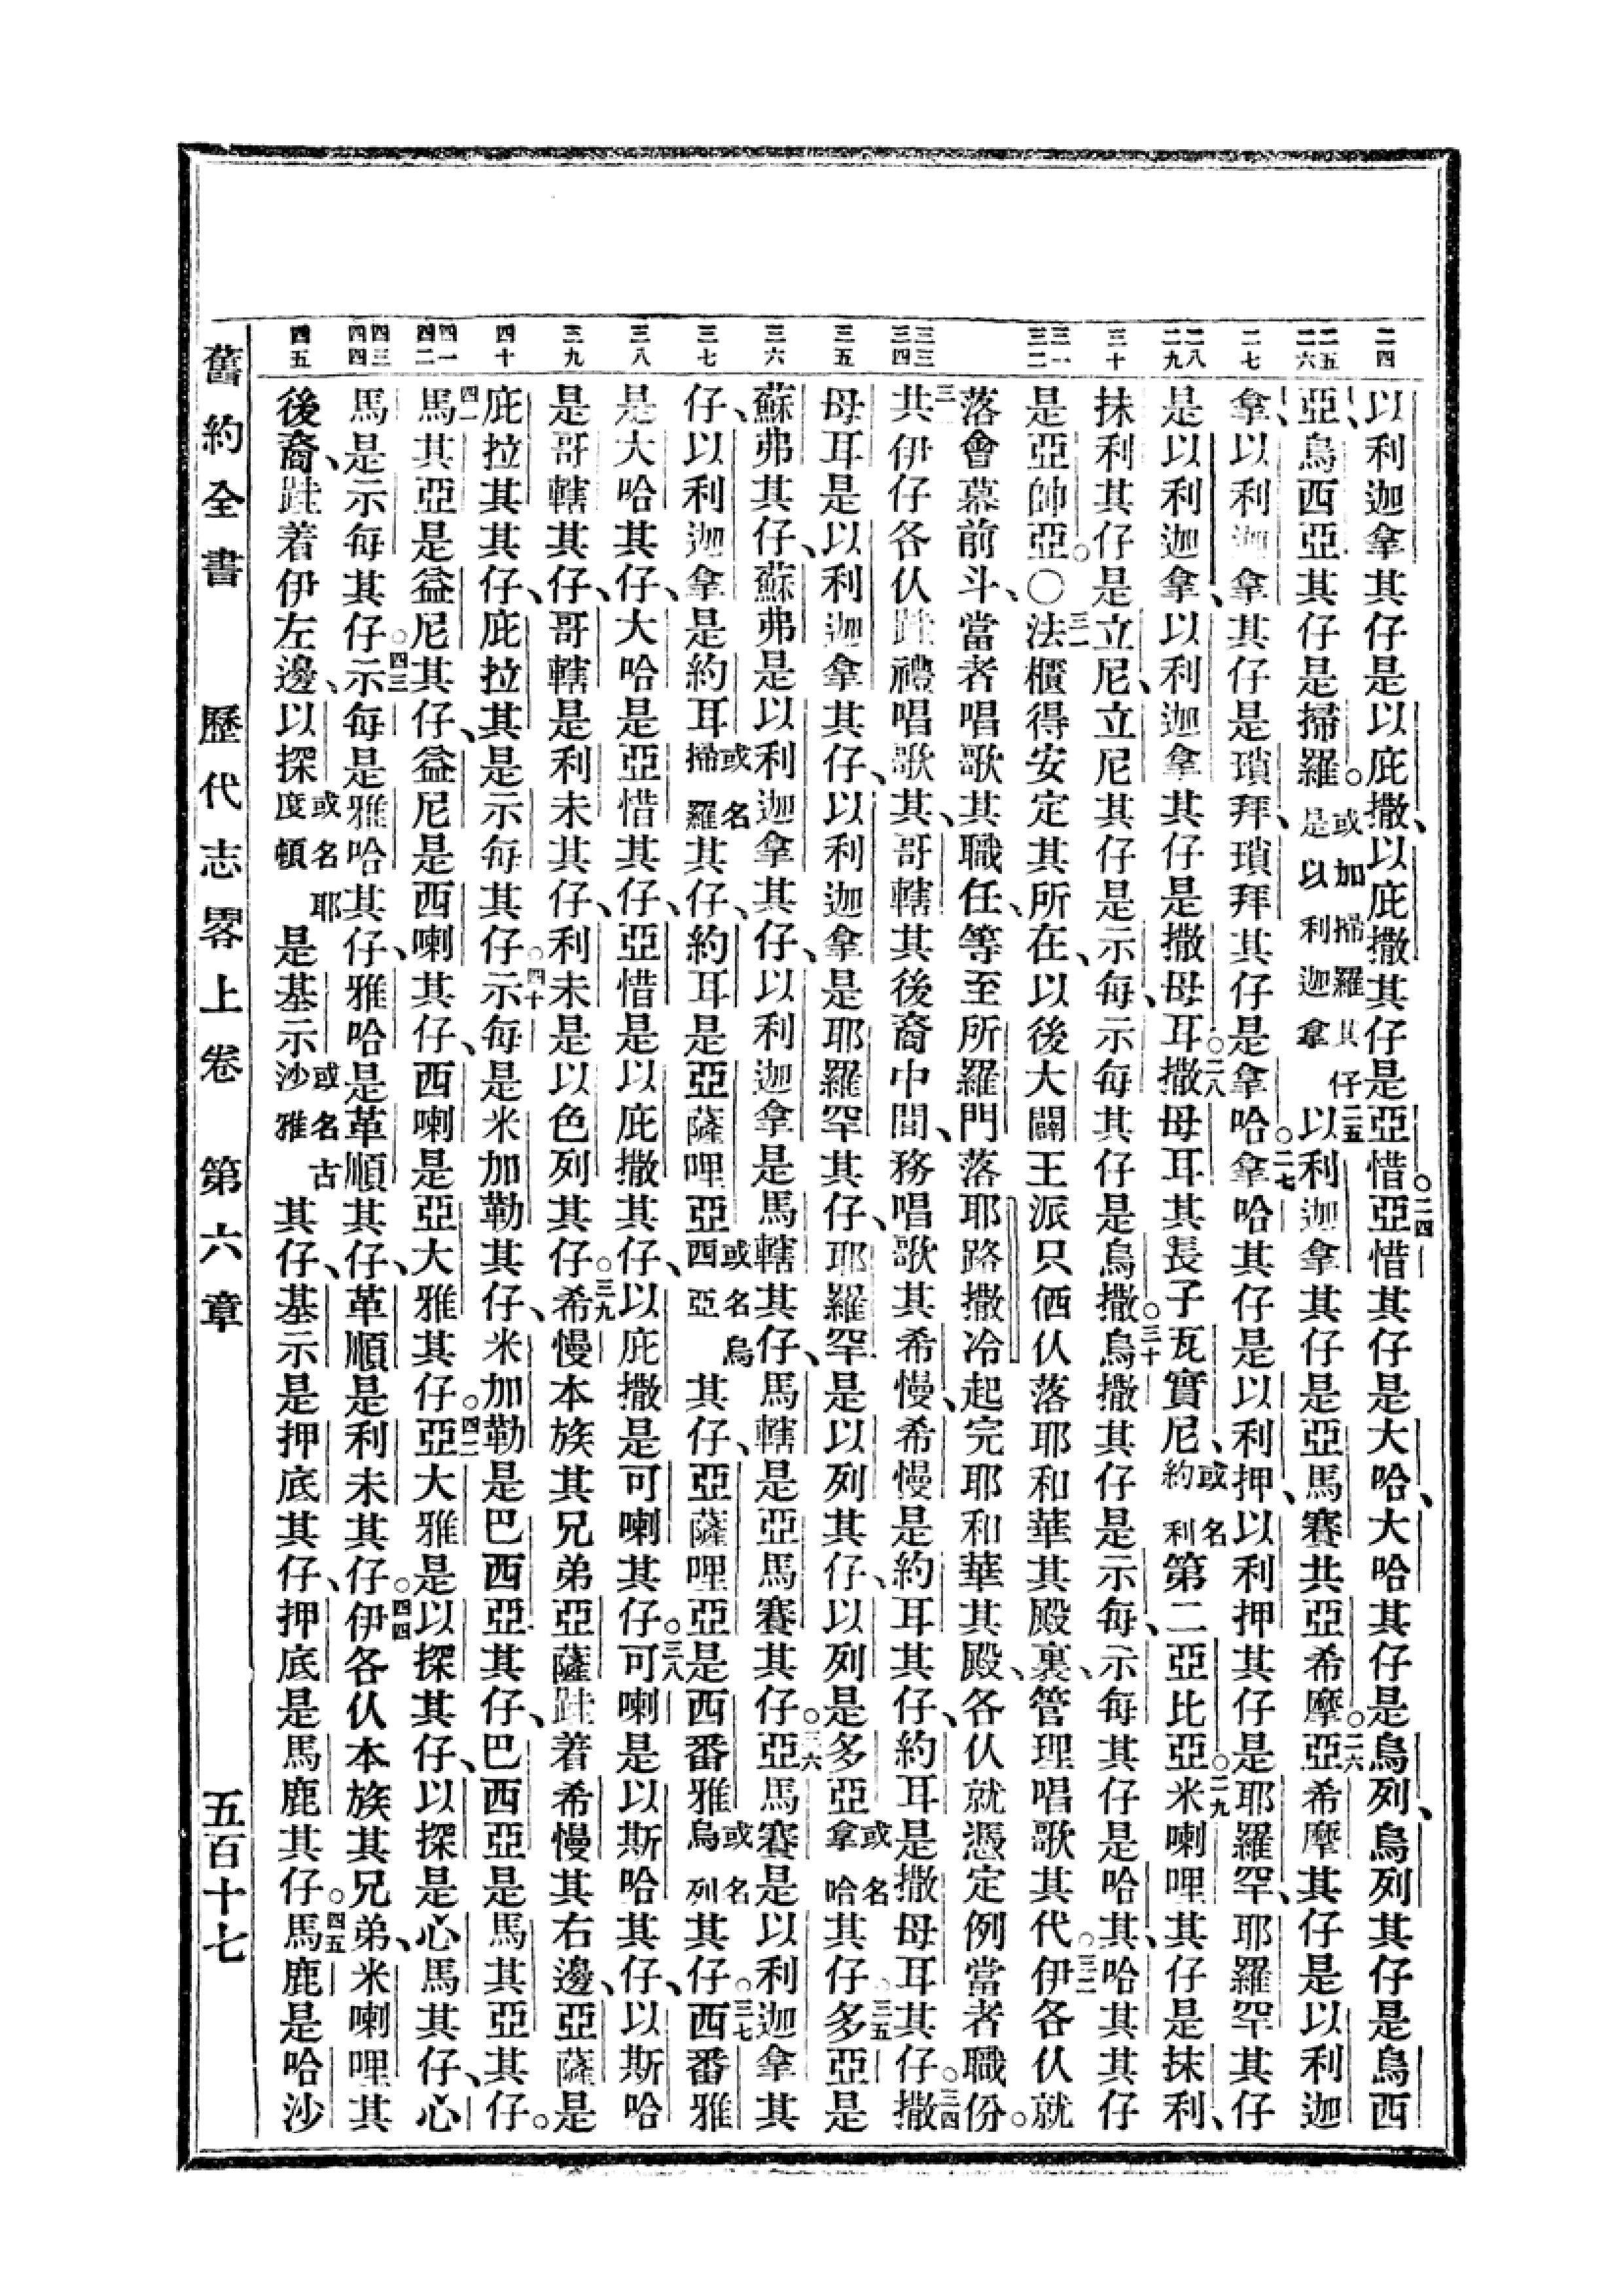 二四
二五
二六
二七
二八
二九
三十
三一
三二
三三
三四
三五
三六
三七
三八
三九
四十
四一
四二
四三
四四
四五
以利迦拿其仔是以庇撒、以庇撒其仔是亞惜。二四亞惜其仔是大哈、大哈其仔是烏列、烏列其仔是烏西
亞、烏西亞其仔是掃羅。或加掃羅其仔是以利迦拿二五以利迦拿其仔是亞馬賽共亞希摩。二六亞希摩其仔是以利迦
拿、以利迦拿其仔是瑣拜、瑣拜其仔是拿哈。二七拿哈其仔是以利押、以利押其仔是耶羅罕、耶羅罕其仔
是以利迦拿、以利迦拿其仔是撒母耳。二八撒母耳其長子瓦實尼、或名約利第二亞比亞。二九米喇哩其仔是抹利、
抹利其仔是立尼、立尼其仔是示每、示每其仔是烏撒。三十烏撒其仔是示每、示每其仔是哈其、哈其其仔
是亞帥亞。〇三一法櫃得安定其所在、以後大闢王派只㑚伩落耶和華其殿裏、管理唱歌其代。三二伊各伩就
落會幕前斗、當者唱歌其職任、等至所羅門落耶路撒冷起完耶和華其殿、各伩就憑定例當者職份。
三三共伊仔各伩跬禮唱歌其、哥轄其後裔中間、務唱歌其希慢、希慢是約耳其仔、約耳是撒母耳其仔。三四撒
母耳是以利迦拿其仔、以利迦拿是耶羅罕其仔、耶羅罕是以列其仔、以列是多亞或名拿哈其仔。三五多亞是
蘇弗其仔、蘇弗是以利迦拿其仔、以利迦拿是馬轄其仔、馬轄是亞馬賽其仔。三六亞馬賽是以利迦拿其
仔、以利迦拿是約耳或名掃羅其仔、約耳是亞薩哩亞或名烏西亞其仔、亞薩哩亞是西番雅或名烏列其仔。三七西番雅
是大哈其仔、大哈是亞惜其仔、亞惜是以庇撒其仔、以庇撒是可喇其仔。三八可喇是以斯哈其仔、以斯哈
是哥轄其仔、哥轄是利未其仔、利未是以色列其仔。三九希慢本族其兄弟亞薩跬着希慢其右邊、亞薩是
庇拉其其仔、庇拉其是示每其仔。四十示每是米加勒其仔、米加勒是巴西亞其仔、巴西亞是馬其亞其仔。
四一馬其亞是益尼其仔、益尼是西喇其仔、西喇是亞大雅其仔。四二亞大雅是以探其仔、以探是心馬其仔、心
馬是示每其仔。四三示每是雅哈其仔、雅哈是革順其仔、革順是利未其仔。四四伊各伩本族其兄弟、米喇哩其
後裔、跬着伊左邊、以探或名耶度頓是基示或名古沙雅其仔、基示是押底其仔、押底是馬鹿其仔。四五馬鹿是哈沙
舊約全書 歷代志畧上卷 第六章 五百十七